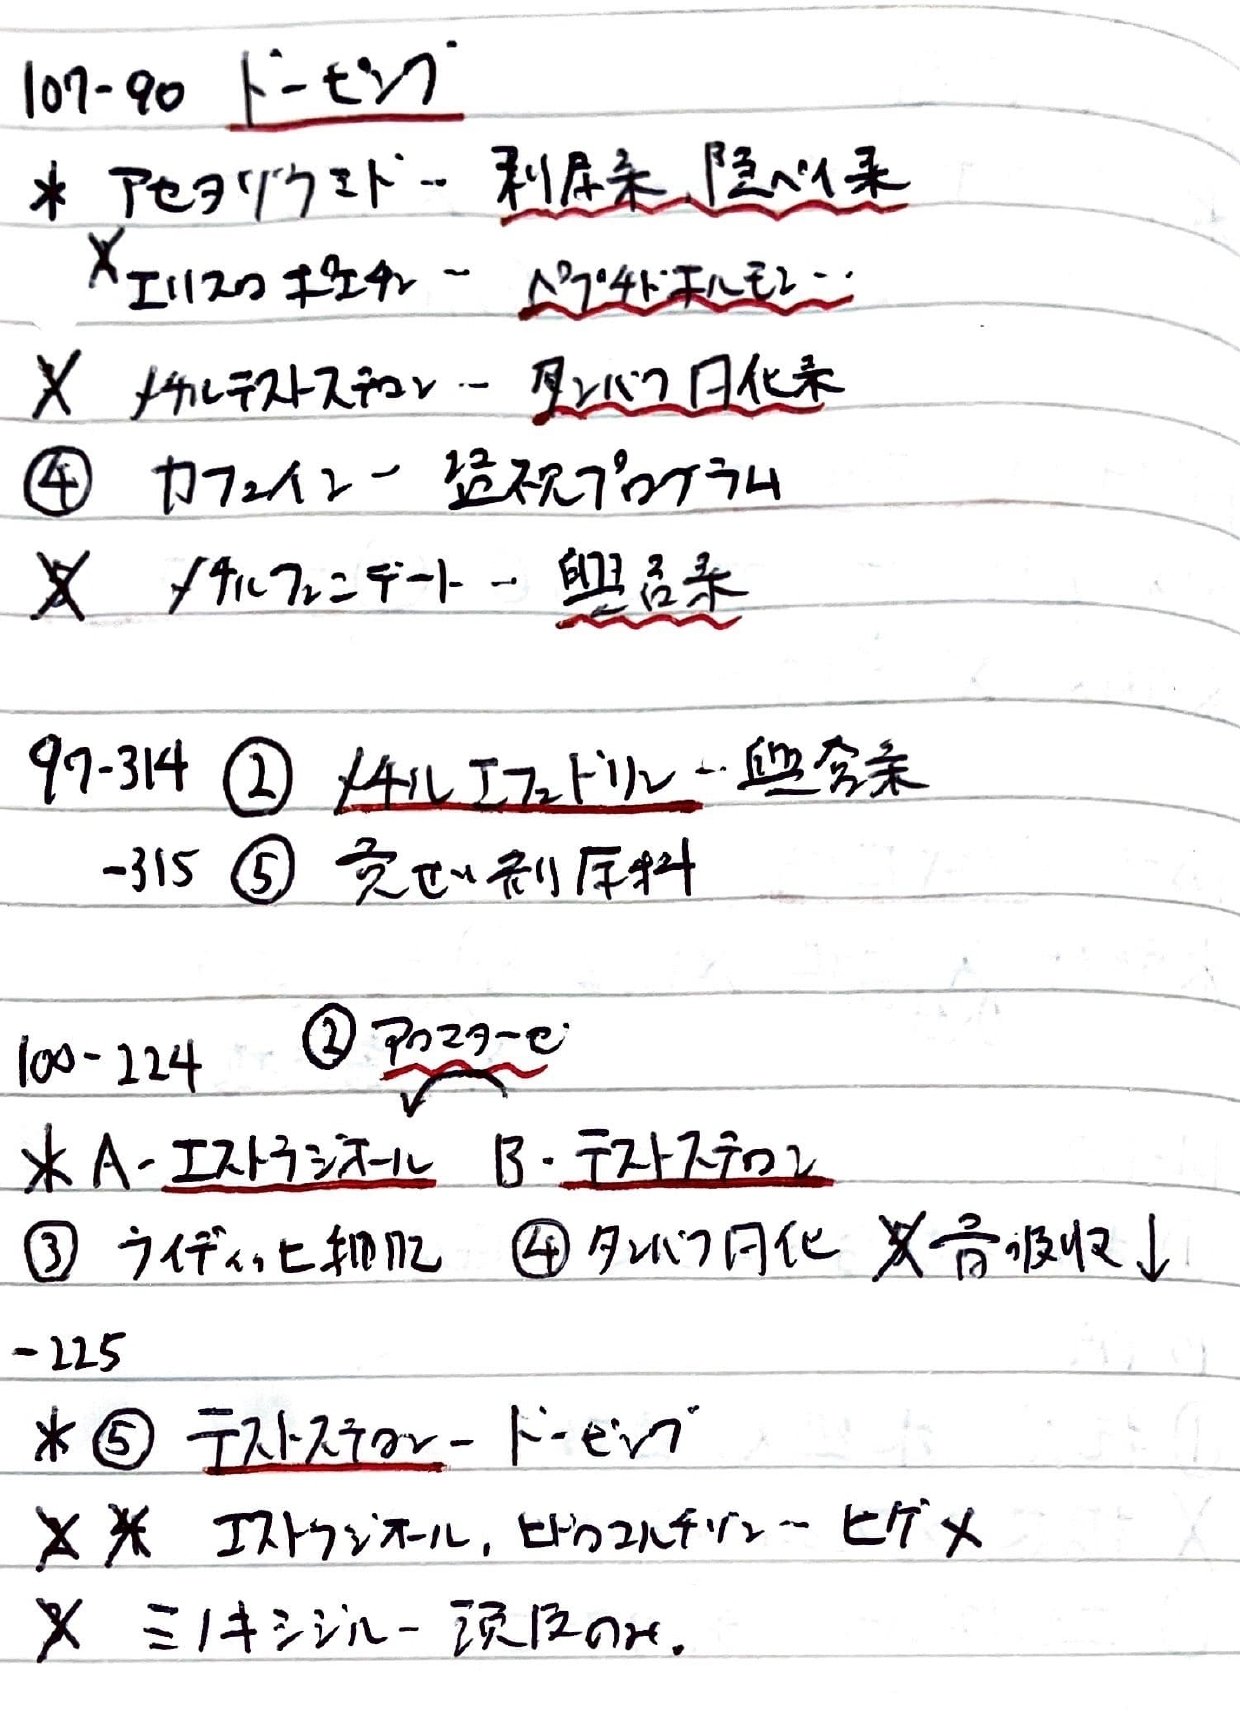 107-90 ドーピング
* アセタゾラミド‥ 利尿系、隠ペイ系
X エリスロポエチン - ペプチドホルモン‥
X メチルテストステロン‥ タンパク同化系
④ カフェイン - 監視プログラム
X メチルフェニデート - 興奮系
97-314 ② メチルエフェドリン‥興奮系
-315 ⑤
② アロマターゼ
100-224
* A- エストラジオール B・テストステロン
③ ライディッヒ細胞 ④ タンパク同化 X 骨吸収↓
-225
* ⑤ テストステロン - ドーピング
X X エストラジオール, ヒドロコルチゾン - ヒゲ×
X ミノキシジル - 頭皮のみ.